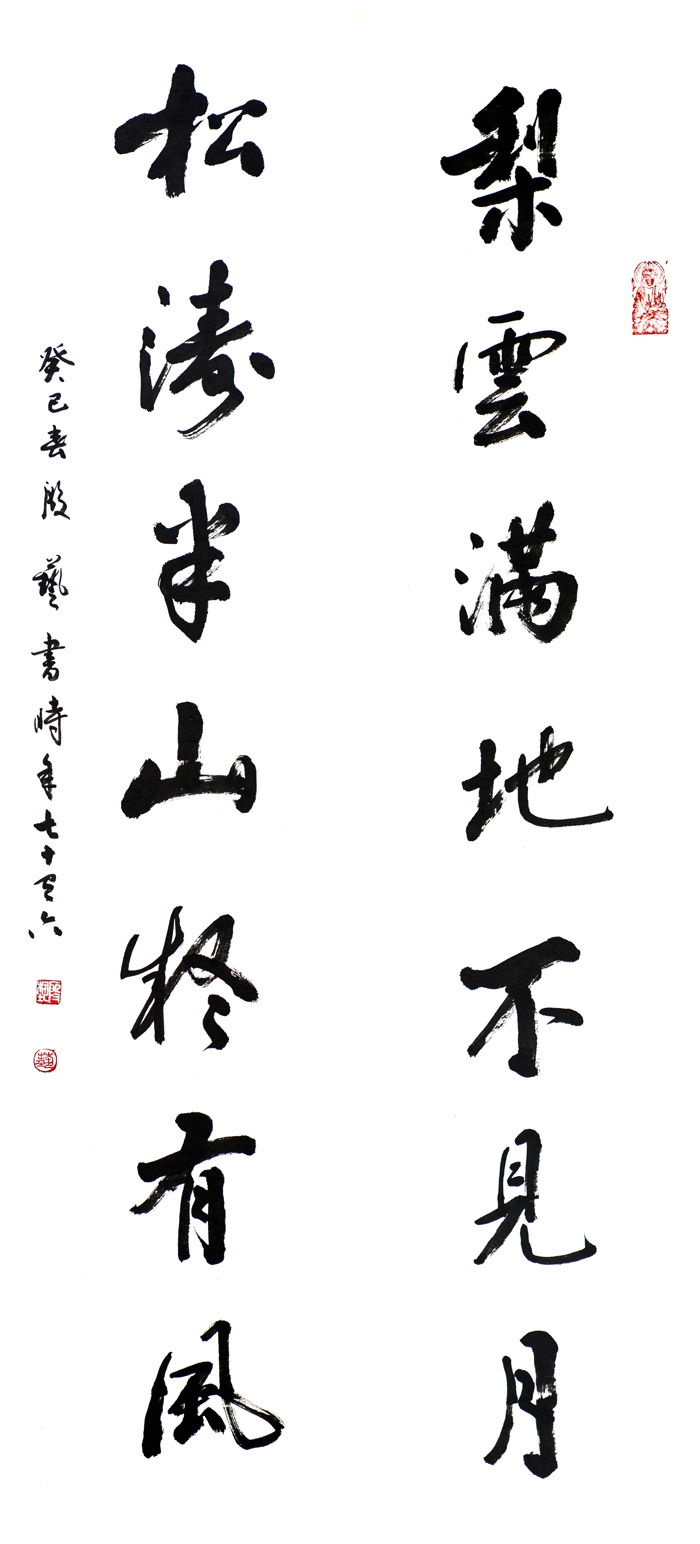 梨雲滿地不見月
松濤半山疑有風
癸巳春殷藝書時年七十又六